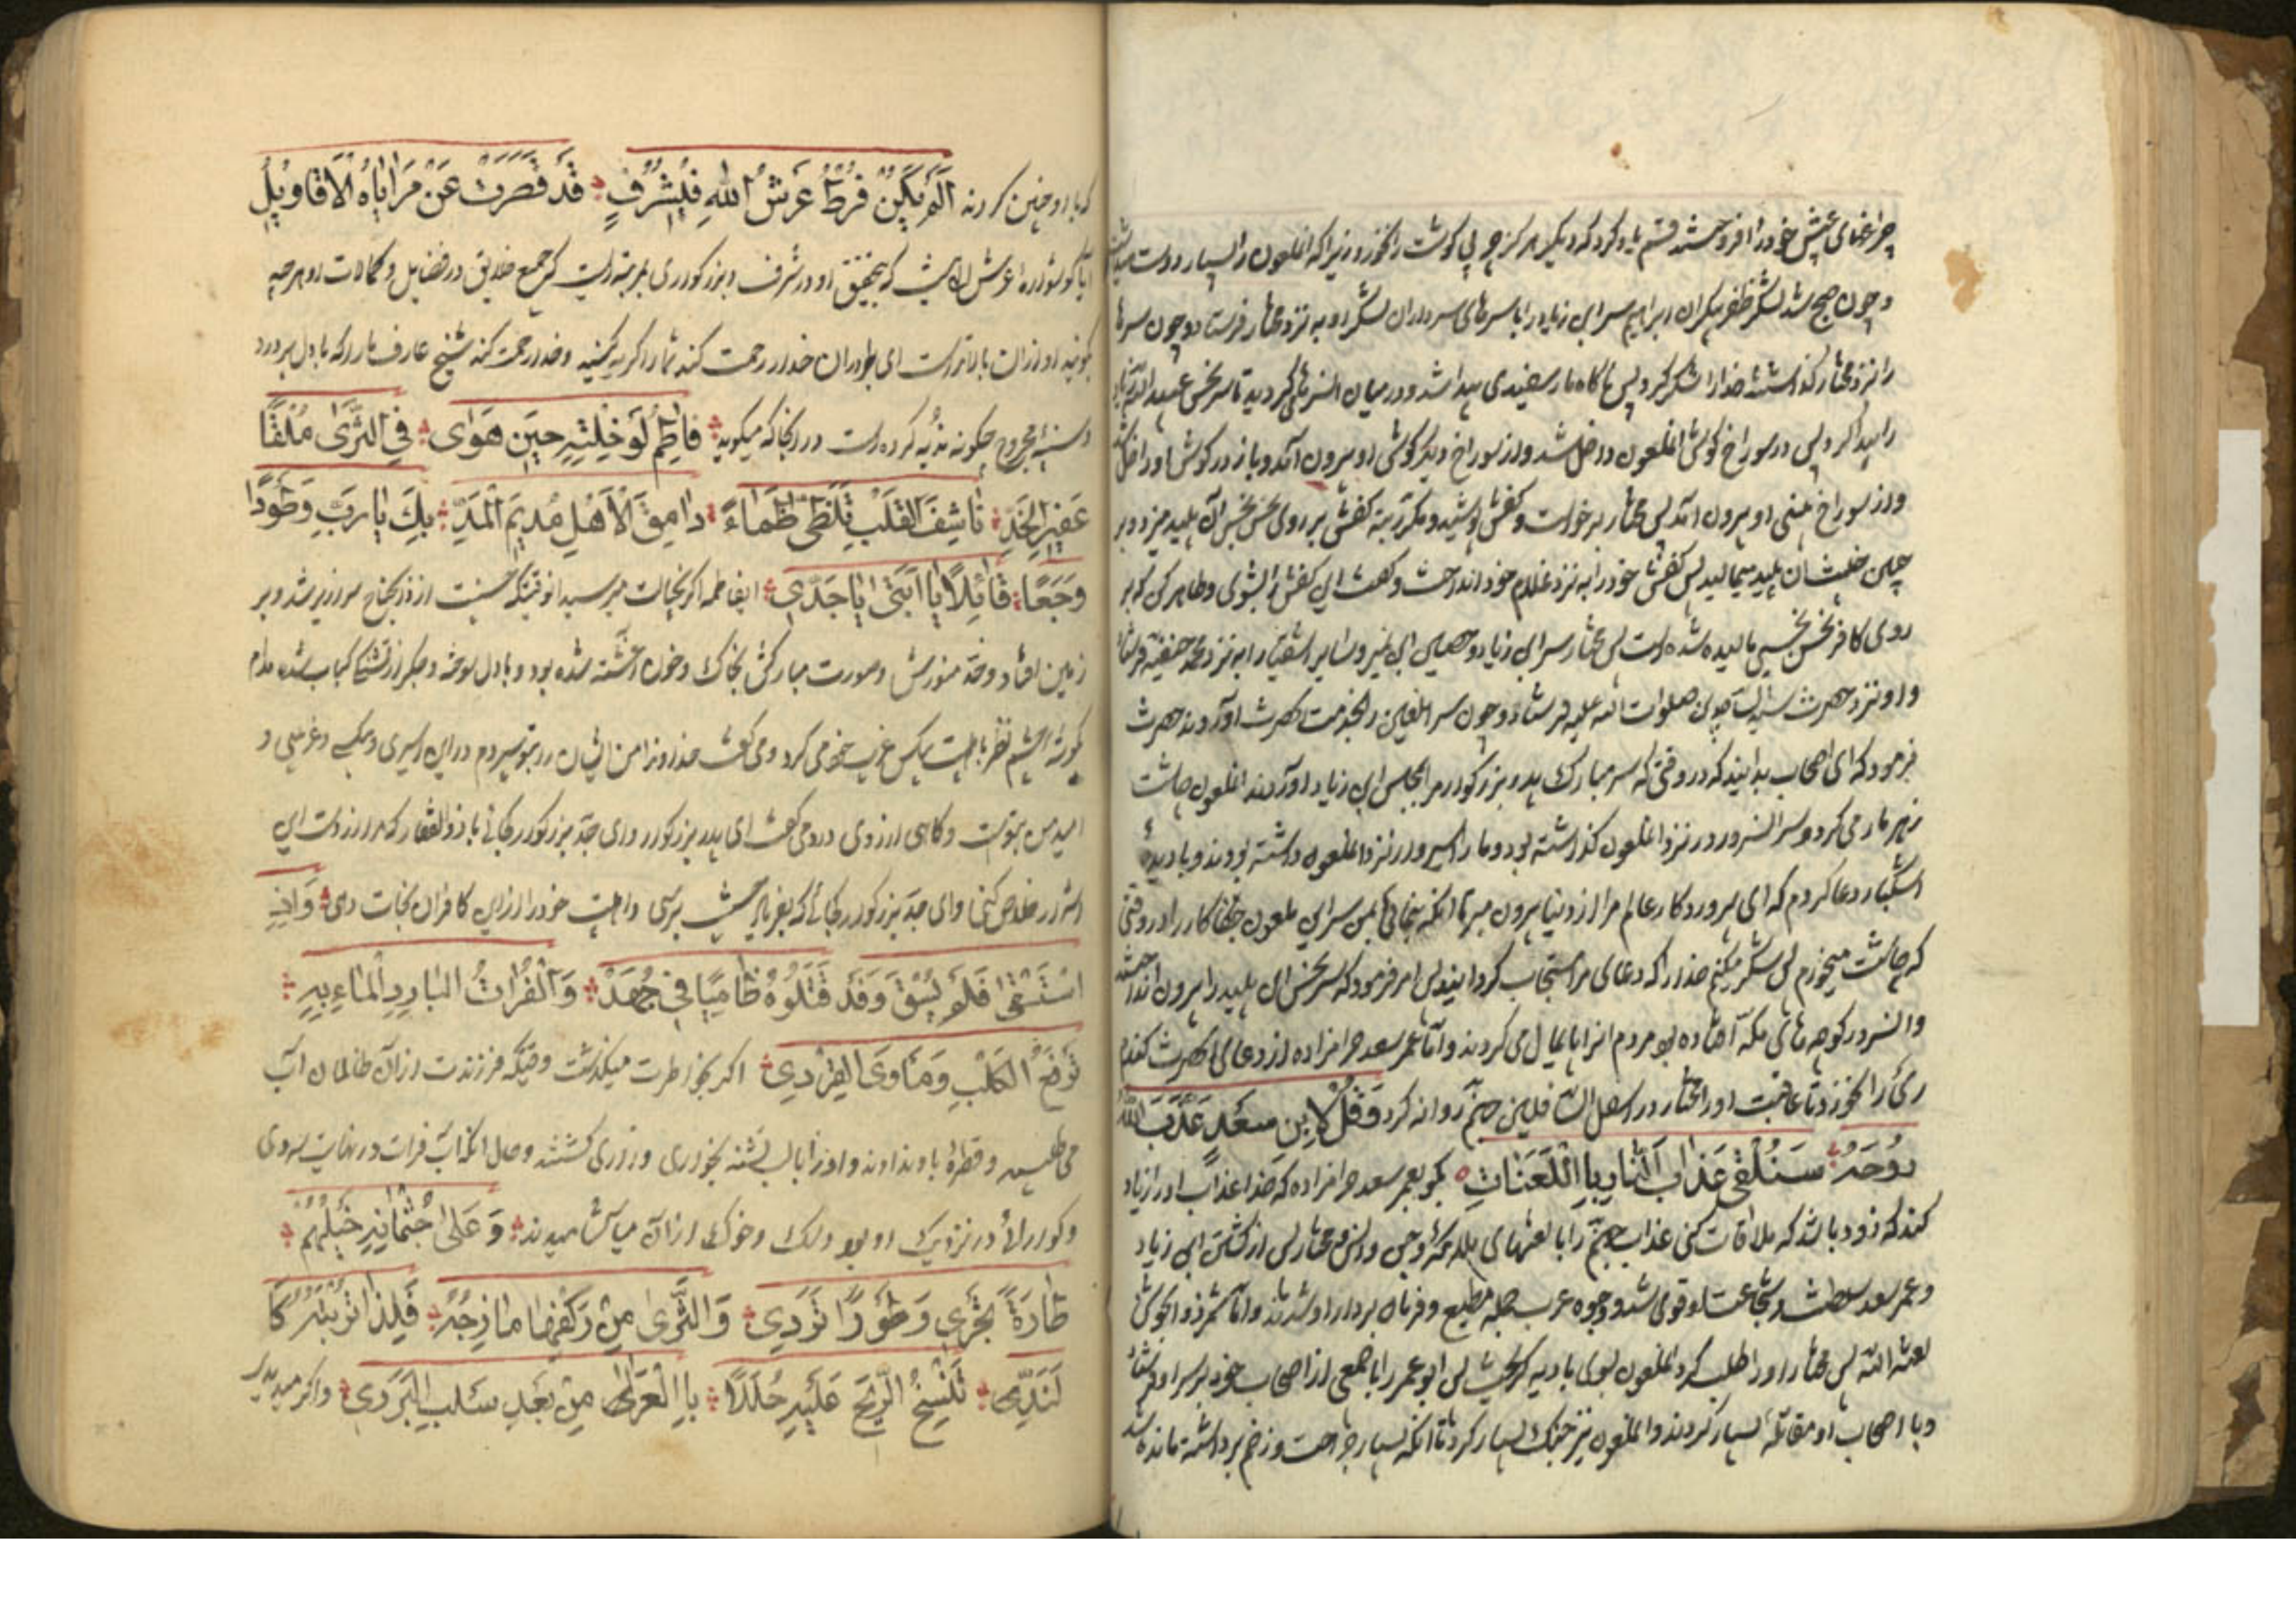 چراغهای عیش خود را فروختند قسم یاد کرد که دیگر هرگز چربی گوشت را نخورد زیرا که آنملعون را بسیار دوست
و چون صبح شد لشکر ابراهیم سر ابن زیاد را با سرهای سرداران لشکر او به نزد مختار فرستاد و چون سرها
را نزد مختار گذاشتند خدا را شکر کرد پس ناگاه مار سفیدی پیدا شد و در میان سرها می گردید تا سر نحس عبید الله
را پیدا کرد پس در سوراخ گوش آنملعون داخل شد و از سوراخ دیگر گوش او بیرون آمد و باز در گوش او داخل
و از سوراخ بینی او بیرون آمد پس مختار برخواست و کفش پوشید و مکرر ته کفش بر روی نحس نجس آن پلید میزد و بر
جبین خباثت آن پلید میمالید پس کفش خود را به نزد غلام خود انداخت و گفت این کفش را بشوی و طاهر کن که بر
روی کافر نحس نجسی مالیده شده است پس مختار سر ابن زیاد و حصین ابن نمیر و سایر اشقیا را به نزد محمد حنفیه فرستاد
و او نزد حضرت سید الساجدین صلوات الله علیه فرستاد و چون سر آنلعین را بخدمت آنحضرت آوردند حضرت
فرمود که ای اصحاب بدانید که در وقتی که سر مبارک پدر بزرگوارم را بمجلس ابن زیاد آوردند آنملعون چاشت
زهر مار می کرد و سر آنسرور در نزد آنملعون گذاشته بود و ما را اسیر در نزد آنملعون داشته بودند و با دیده
اشکبار دعا کردم که ای پروردگار عالم مرا از دنیا بیرون مبر تا آنکه بنمائی بمن سر این ملعون جفاکار را در وقتی
که چاشت میخورم پس شکر میکنم خدا را که دعای مرا مستجاب گردانید پس امر فرمود که سر نحس آن پلید را بیرون انداختند
و آنسر در کوچه های مکه افتاده بود مردم آنرا پایمال می کردند و اما عمر سعد حرامزاده از دعای آنحضرت گندم
ری را نخورد تا عاقبت او را مختار در اسفل السافلین جهنم روانه کرد وَقُلْ لِابْنِ سَعْدٍ عَذَّبَ اللهُ
رُوحَهُ سَتَلْقَى عَذَابَ النَّارِ بِاللَّعَنَاتِ بگو بعمر سعد حرامزاده که خدا عذاب او را زیاد
کند که زود باشد که ملاقات کنی عذاب جهنم را با لعنتهای پس مختار پس از کشتن ابن زیاد
و عمر سعد سلطنت و شجاعت او قوی شد و وجوه عرب جمله مطیع و فرمان بردار او شدند و اما شمر ذوالجوشن
لعنه الله پس مختار او را طلب کرد آنملعون بسوی بادیه گریخت پس ابو عمر را با جمعی از اصحاب خود بر سر او
و با اصحاب او مقاتله بسیار کردند و آنملعون نیز جنگ بسیار کرد تا آنکه بسیار جراحت و زخم برداشته مانده شد
که با او چنین کردند اَلَمْ يَكُنْ قُرْطُ عَرْشِ اللهِ فِي شَرَفٍ قَدْ قَصُرَتْ عَنْ مَزَايَاهُ الْأَقَاوِيلُ
آیا گوشواره عرش که بتحقیق او در شرف و بزرگواری بمرتبه ایست که جمیع خلایق در فضایل و کمالات او هر چه
گویند او از آن بالاتر است ای برادران خدا رحمت کند شما را گریه کنید و خدا رحمت کند شیخ عارف ما را که با دل پر درد
و سینه مجروح چگونه ندبه کرده است در آنجا که میگوید فَاطِمُ لَوْ خِلْتِهِ حِينَ هَوَى فِي الثَّرَى مُلْقًا
عَفِيرَ الْخَدِّ نَاشِفَ الْقَلْبِ تَلَظَّى ظَمَاءً رَامِقَ الْأَهْلِ مُدِيمَ الْمَدِّ بِكَ يَا رَبِّ وَطَوْرًا
وَجَعًا قَائِلًا يَا اَبَتَى يَا جَدِّي ایفاطمه اگر بخیالت میرسید آنوقتیکه حسینت از ذوالجناح سرازیر شد و بر
زمین افتاد و خد منورش و صورت مبارکش بخاک و خون آغشته شده بود و با دل سوخته و جگر از تشنگی کباب شده مدام
بگوشه چشم نظر باهلبیت بیکس غریب خود می کرد و می گفت خداوندا من ایشان را بتو سپردم در این اسیری و بیکسی و غریبی و
امید من بتوست و گاهی از روی درد می گفت ای پدر بزرگوار و ای جد بزرگوار کجائی با ذوالفقار که مرا از دست این
اشرار خلاص کنی و ای جد بزرگوار کجائی که بفریاد برسی و اهلبیت خود را از این کافران نجات دهی وَاِذِ
اسْتَسْقَى فَلَمْ يُسْقَ وَقَدْ قَتَلُوهُ ظَامِيًا فِي جُهْدٍ وَالْفُرَاتُ الْبَارِدِ الْمَاءِ بِهِ
تَوْضَحُ الْكَلْبِ وَمَأْوَى الْقِرْدِي اگر بخاطرت میگذشت وقتیکه فرزندت از آن ظالمان آب
می طلبید و قطره باو ندادند و او را با لب تشنه بخواری و زاری کشتند و حال آنکه آب فرات در نهایت سردی
و گوارائی در نزدیک او بود و سگ و خوک از آن می آشامیدند وَعَلَى جُثْمَانِهِ خَيْلُهُمُ
طَارَةً تَجْرِي وَطَوْرًا تَرْدِي وَالثَّرَى مِنْ رَكْضِهَا مَازَجَهُ فَلِذَا تُرْبَتُهُ كَا
لنَّدِّي تَنْسِجُ الرِّيحُ عَلَيْهِ حُلَلًا بِالْعَرَى مِنْ بَعْدِ سَلْبِ الْبُرْدِي و اگر میدیدی